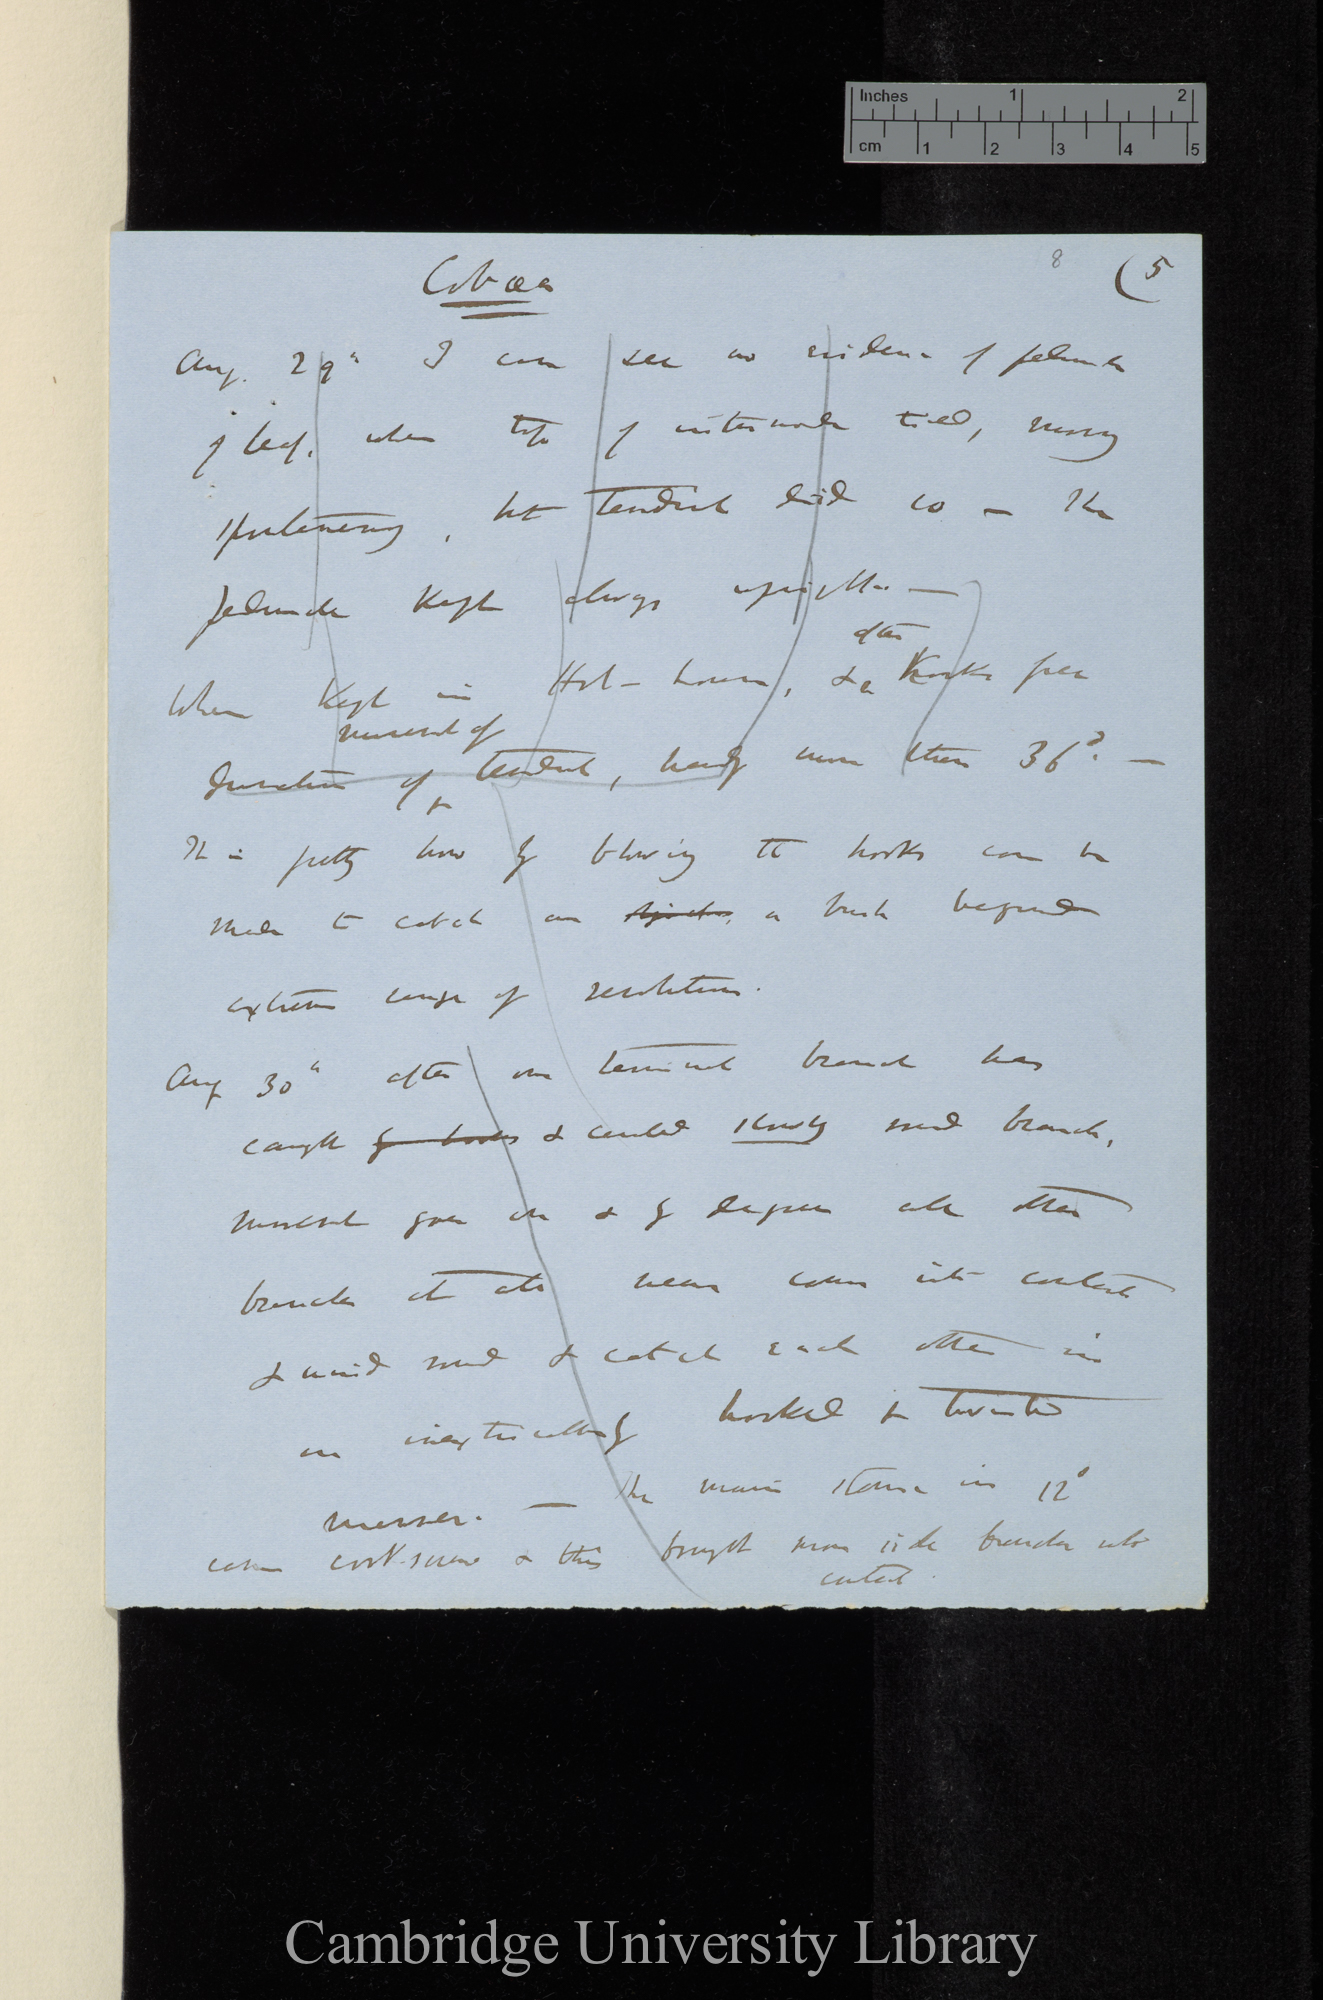 Inches 1 2
cm 1 2 3 4 5
8 (5
Cobæa
Aug. 29th I can see no evidence of peduncle
of leaf, when top of internode tied, moving
spontaneously, but tendril did so — The
peduncle kept always upright. —
after
When kept in Hot-house, & hooks free
movement of
duration of tendril, hardly more than 36°. —
It is pretty how by blowing the hooks can be
made to catch on a bush beyond
extreme range of revolutions.
Aug 30th after one terminal branch has
caught by hooks & curled slowly round branch,
movement goes on & by degrees all other
branches come into contact
& wind round & catch each other in
an inextricably hooked & twisted
manner. — The main stem in 12°
came cork-screw & this brought more side branches into
contact.
Cambridge University Library